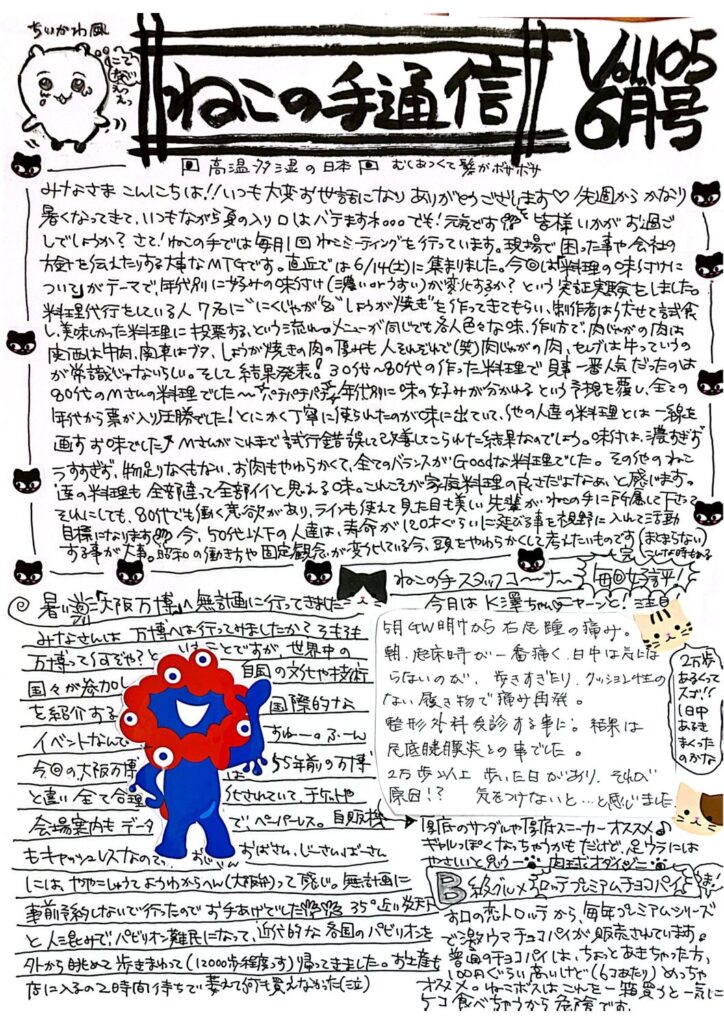 ちいかわ風
ねこの手通信
Vol.105
6月号
高温多湿の日本 むしあつくて髪がボサボサ
みなさま こんにちは!!いつも大変お世話になり ありがとうございます♡ 先週から かなり
暑くなってきて、いつもながら夏の入り口は バテますネ。。。でも!元気です 皆様いかがお過ご
しでしょうか?さて!ねこの手では毎月1回 ねこミーティングを行っています。現場で困った事や会社の
方針を伝えたりする大事なMTGです。直近では6/14(土)に集まりました。今回は「料理の味付けに
ついて」がテーマで、年代別に好みの味付け(濃いorうすい)が変化するか?という実証実験をしました。
料理代行をしている人7名に"にくじゃが"&"しょうが焼き"を作ってきてもらい、制作者は伏せて試食
し、美味しかった料理に投票する、という流れ。メニューが同じでも各人色々な味、作り方で、肉じゃがの肉は
関西は牛肉、関東はブタ、しょうが焼きの肉の厚みも人それぞれで(笑)肉じゃがの肉、セレブは牛っていうの
が常識じゃないらしい。そして結果発表!30代〜80代の作った料理で見事一番人気だったのは
80代のMさんの料理でした〜パチパチパチ年代別に味の好みが分かれるという予想を覆し、全ての
年代から票が入り圧勝でした!とにかく丁寧に作られたのが味に出ていて、他の人達の料理とは一線を
画すお味でした♪Mさんがこれまで試行錯誤して改善してこられた結果なのでしょう。味付は、濃すぎず
うすすぎず、物足りなくもない、お肉もやわらかくて、全てのバランスがGoodな料理でした。その他のねこ
達の料理も全部違って全部イイと思える味。これこそが家庭料理の良さだよなぁと感じます。
それにしても、80代でも働く意欲があり、ラインも使えて見た目も美しい先輩が、ねこの手に所属して下さって
目標になります 今、50代以下の人達は、寿命が120才ぐらいに延びる事を視野に入れて活動
する事が大事。昭和の働き方や固定観念が変化している今、頭をやわらかくして考えたいものです 完
(まとまらない)
こんな時もある
ねこの手スタッフコ〜ナ〜 毎回好評!
今月は K澤ちゃん ニャーンと!注目
5月GW明けから右尾腫の痛み。
朝、起床時が一番痛く、日中は気には
ならないのが、歩きすぎたり、クッション性の
ない履き物で痛み再発。
整形外科受診する事に。結果は
足底腱膜炎との事でした。
2万歩以上歩いた日があり、それが
原因!? 気をつけないと…と感じました
2万歩
あるくって
スゴ!!
1日中
あるき
まくった
のかな
厚底のサンダルや厚底スニーカーオススメ♪
ギャルっぽくなっちゃうかもだけど、足ウラには
やさしいと思う
暑い!!「大阪万博」へ無計画に行ってきました
みなさんは 万博へは行ってみましたか?そもそも
万博って何ぞや?と
いうことですが、世界中の
国々が参加し
自国の文化や技術
を紹介する
国際的な
イベントなんで
おゅー。ふーん
今回の大阪万博は
55年前の万博
と違い全て合理
化されていて、チケットや
会場案内もデータ
で、ペーパーレス。自販機
もキャッシュレスなので、
おじさん おばさん、じーさんばーさん
には、ややこしゅうてようわからへん(大阪弁)って感じ。無計画に
事前予約しないで行ったのでお手あげでした 35°近い炎天下
と人混みで、パビリオン難民になって、近代的な各国のパビリオンを
外から眺めて歩きまわって(12000歩程度っす)帰ってきました。お土産も
店に入るの2時間待ちで萎えて何も買えなかった(泣)
B級グルメ ロッテプレミアムチョコパイ
お口の恋人ロッテから、毎年プレミアムシリーズ
で激ウマチョコパイが販売されています。
普通のチョコパイは、ちょっとあきちゃった方、
100円ぐらい高いけど(1コあたり)めっちゃ
オススメ。ねこボスはこれを一箱買うと一気に
5コ食べちゃうから危険です。